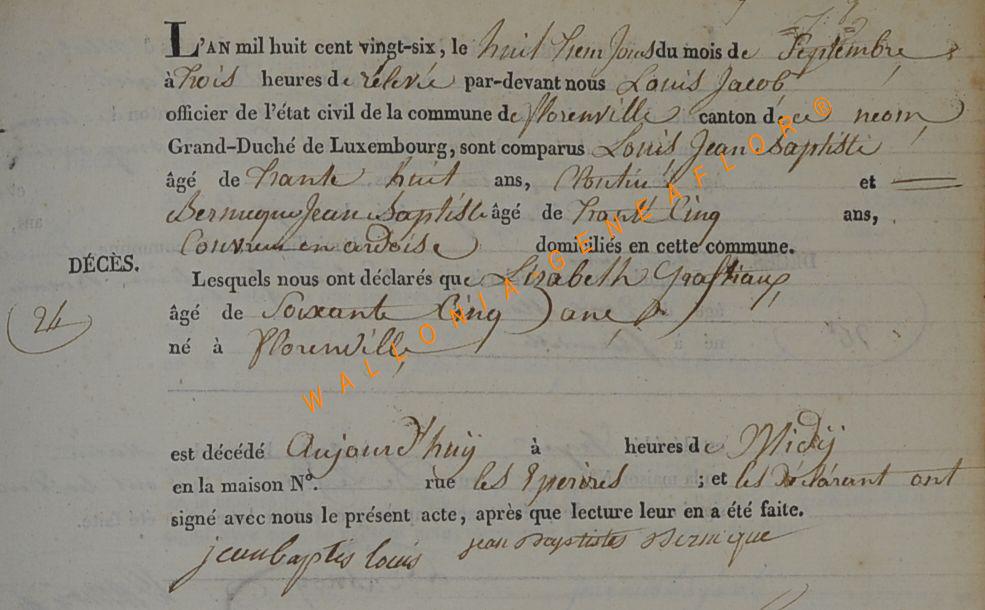 L'AN mil huit cent vingt-six, le huit trem Jours du mois de Septembre
à trois heures de rélevée par-devant nous Louis Jacob
officier de l'état civil de la commune de florenville canton de ce neom
Grand-Duché de Luxembourg, sont comparus Louis Jean Baptiste
âgé de trante huit ans, et
Bernique Jean Baptiste âgé de trante Cinq ans,
Couvreur en ardoise domiciliés en cette commune.
DÉCÈS.
Lesquels nous ont déclarés que Lisabeth Grastiaux
24
âgé de Soixante Cinq ans
né à florenville
WALLONIA-GENEAFLOR®
est décédé Aujourd'huy à heures de Midy
en la maison N°. rue les Eperires ; et les Déclarant ont
signé avec nous le présent acte, après que lecture leur en a été faite.
jean baptis louis jean Baptiste Bernique